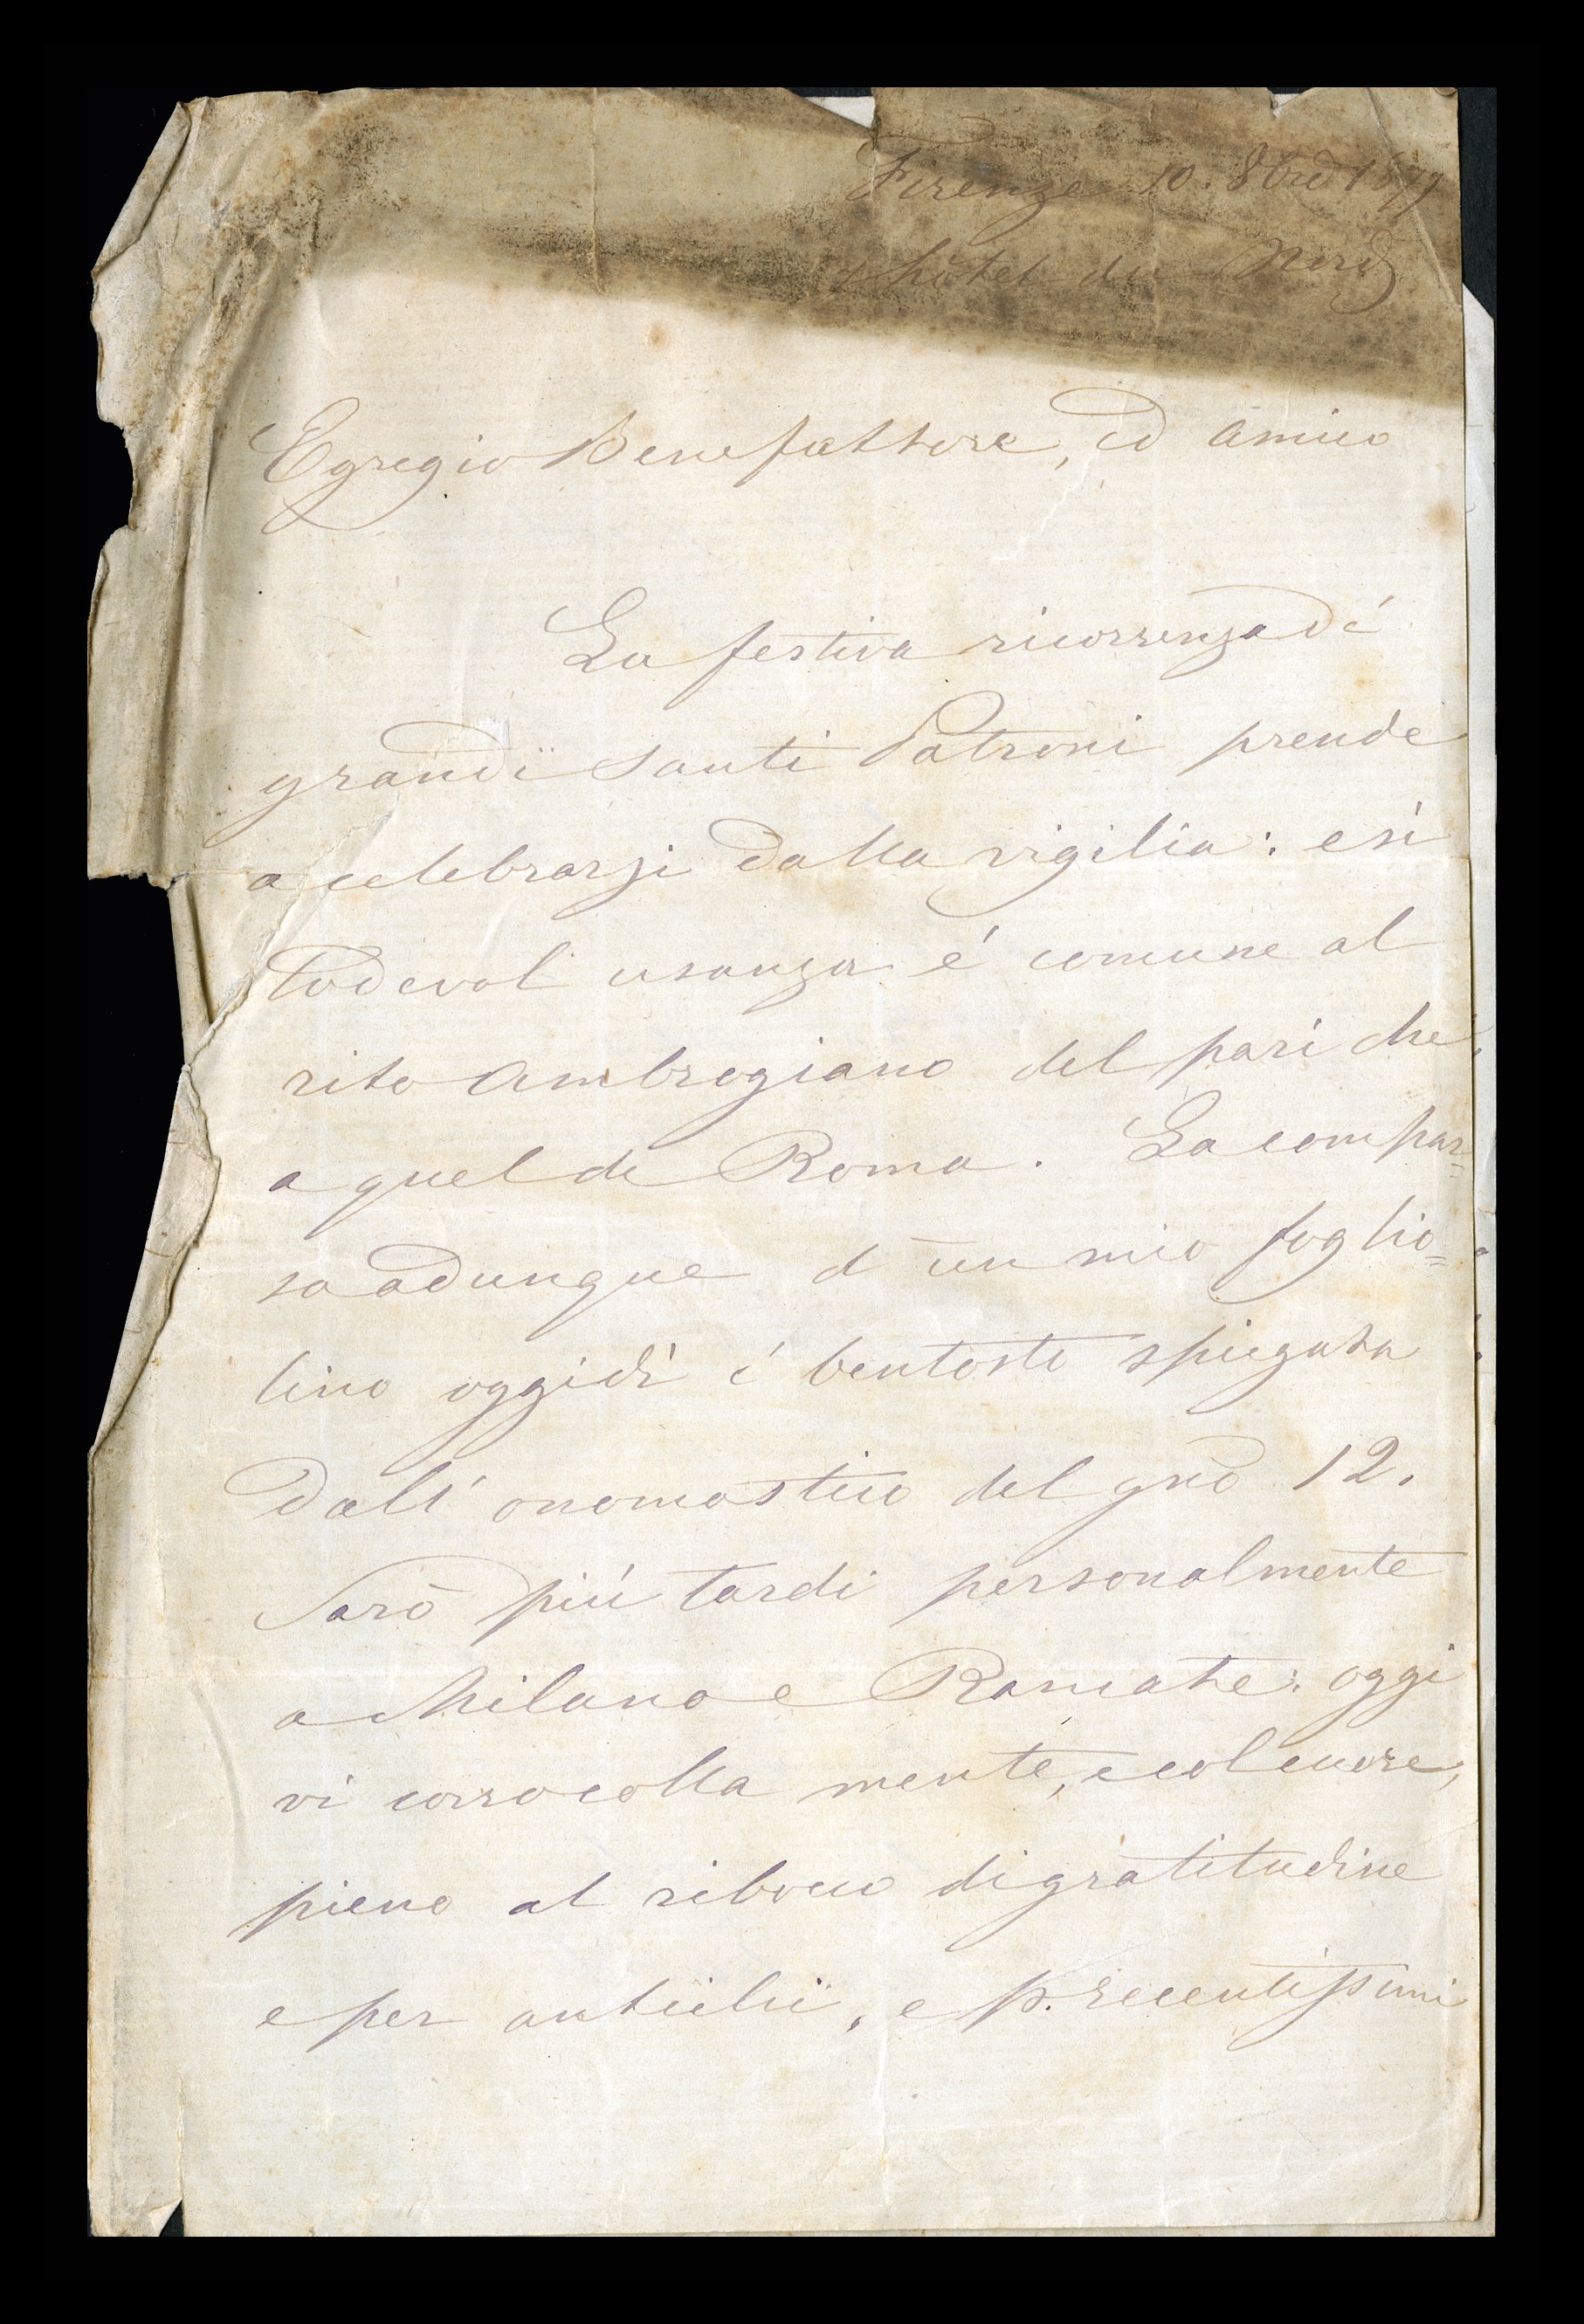 Firenze 10. 8bre 1877
hôtel du Nord
Egregio Benefattore, ed amico
La festiva ricorrenza de'
grandi Santi Patroni prende
a celebrarsi dalla vigilia: e sì
lodevol usanza é comune al
rito Ambrogiano del pari che
a quel di Roma. La compar=
sa adunque d'un mio foglio=
lino oggidì é bentosto spiegata
dall' onomastico del gno 12.
Sarò più tardi personalmente
a Milano e Ramate: oggi
vi corro colla mente, e col cuore,
pieno al ribocco di gratitudine
e per antichi, e p. recentissimi